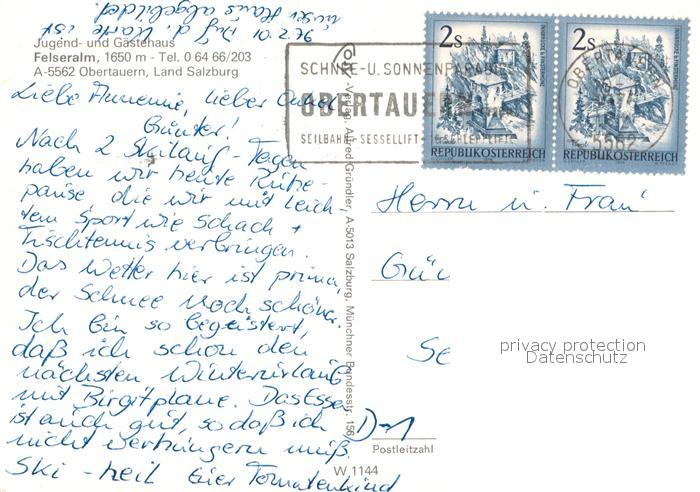 Jugend- und Gästehaus
Felseralm, 1650 m - Tel. 0 64 66/203
A-5562 Obertauern, Land Salzburg
10.2.76
Auf d. Karte ist
unser Haus abgebildet.
Liebe Annemie, lieber Onkel
Günter!
Nach 2 Skilauf-Tagen
haben wir heute Ruhe-
pause die wir mit leich-
tem Sport wie Schach +
Tischtennis verbringen.
Das Wetter hier ist prima,
der Schnee noch schöner.
Ich bin so begeistert,
daß ich schon den
nächsten Winterurlaub
mit Birgit plane. Das Essen
ist auch gut, so daß ich
nicht verhungern muß.
Ski-heil Euer Tomatenkind
SCHNEE-U.SONNENPARADIES
OBERTAUERN
SEILBAHN-SESSELLIFT-SCHLEPPLIFTE
2s
REPUBLIK ÖSTERREICH
2s
REPUBLIK ÖSTERREICH
OBERTAUERN
5562
Verlag Alfred Gründler, A-5013 Salzburg, Münchner Bundesstr. 156
Herrn u. Frau
Gü
Se
D-
Postleitzahl
W 1144
privacy protection
Datenschutz